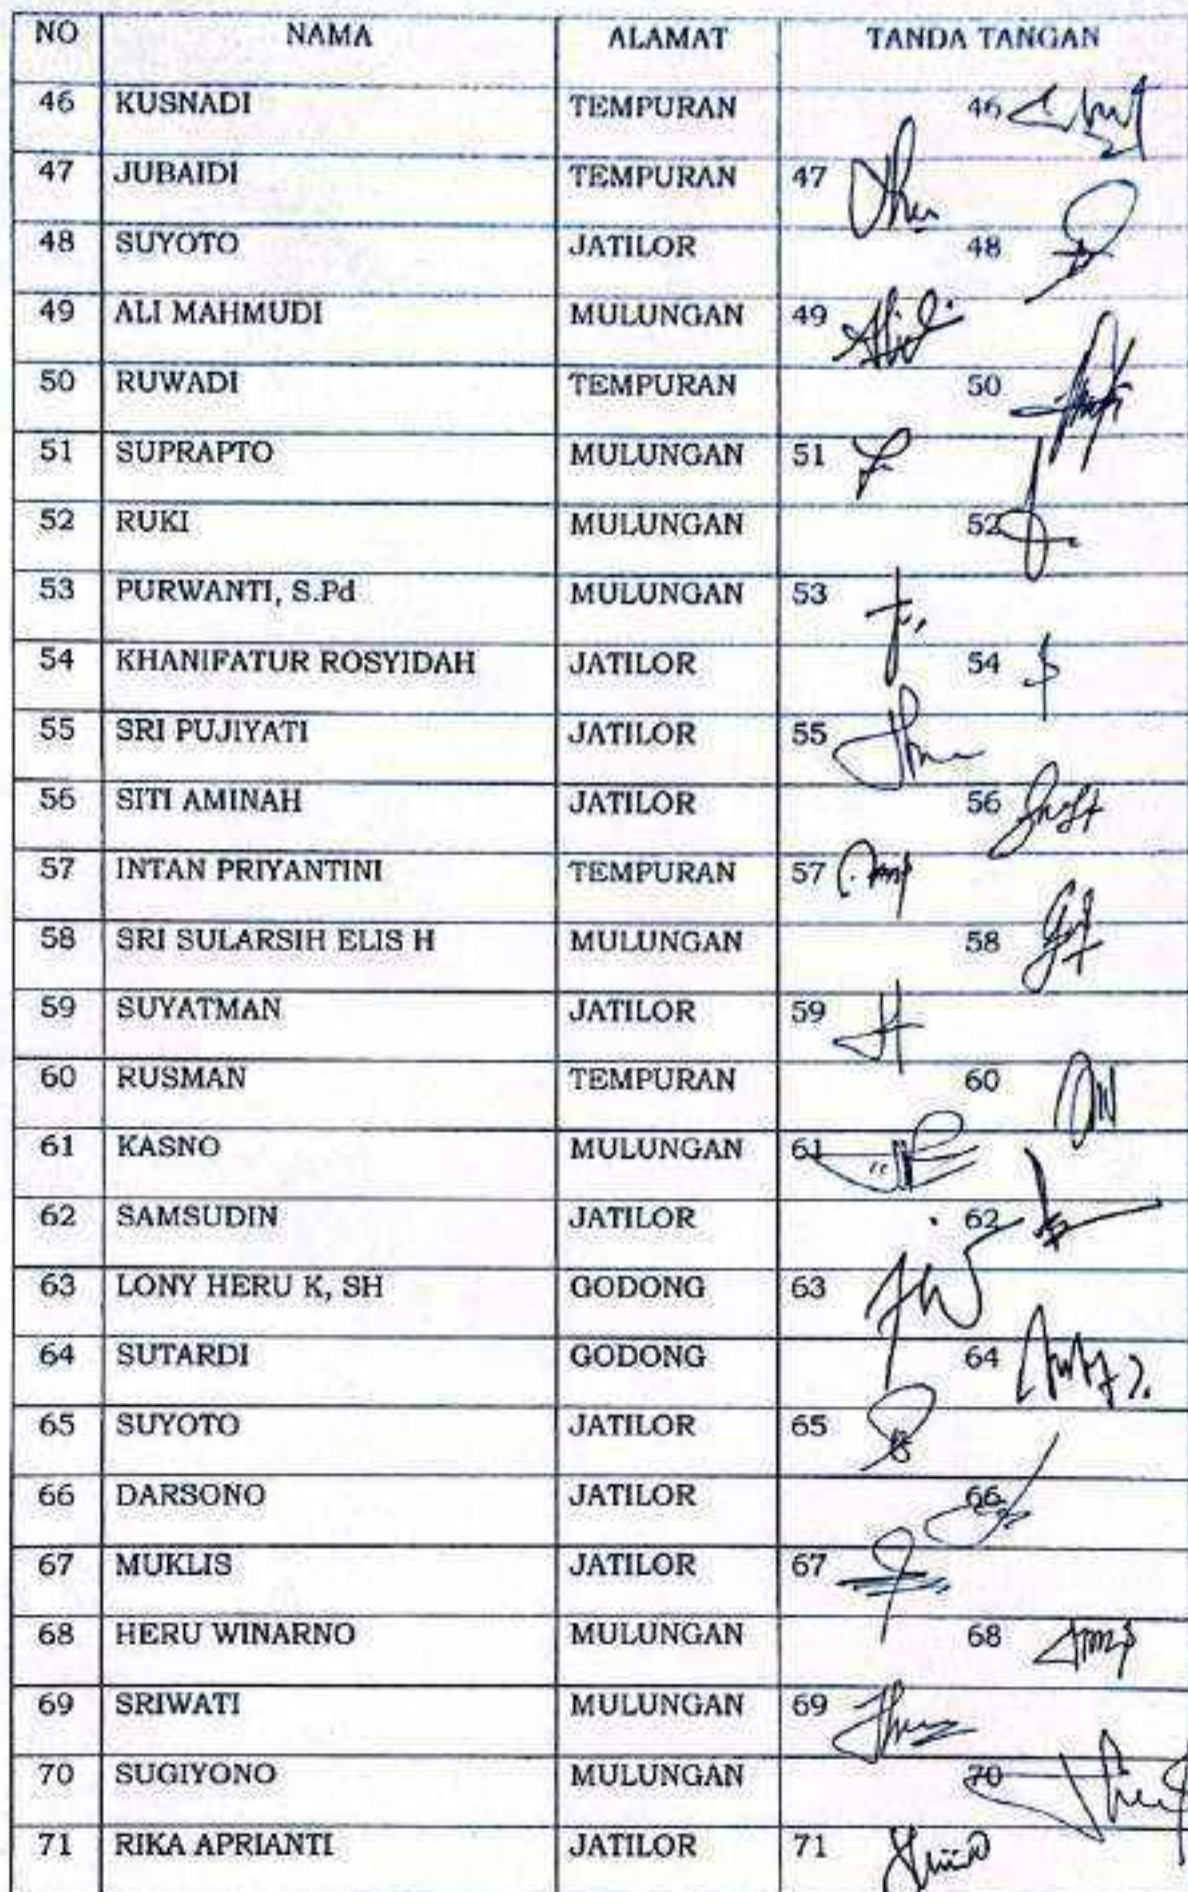 NO NAMA ALAMAT TANDA TANGAN
46 KUSNADI TEMPURAN 46
47 JUBAIDI TEMPURAN 47
48 SUYOTO JATILOR 48
49 ALI MAHMUDI MULUNGAN 49
50 RUWADI TEMPURAN 50
51 SUPRAPTO MULUNGAN 51
52 RUKI MULUNGAN 52
53 PURWANTI, S.Pd MULUNGAN 53
54 KHANIFATUR ROSYIDAH JATILOR 54
55 SRI PUJIYATI JATILOR 55
56 SITI AMINAH JATILOR 56
57 INTAN PRIYANTINI TEMPURAN 57
58 SRI SULARSIH ELIS H MULUNGAN 58
59 SUYATMAN JATILOR 59
60 RUSMAN TEMPURAN 60
61 KASNO MULUNGAN 61
62 SAMSUDIN JATILOR 62
63 LONY HERU K, SH GODONG 63
64 SUTARDI GODONG 64
65 SUYOTO JATILOR 65
66 DARSONO JATILOR 66
67 MUKLIS JATILOR 67
68 HERU WINARNO MULUNGAN 68
69 SRIWATI MULUNGAN 69
70 SUGIYONO MULUNGAN 70
71 RIKA APRIANTI JATILOR 71